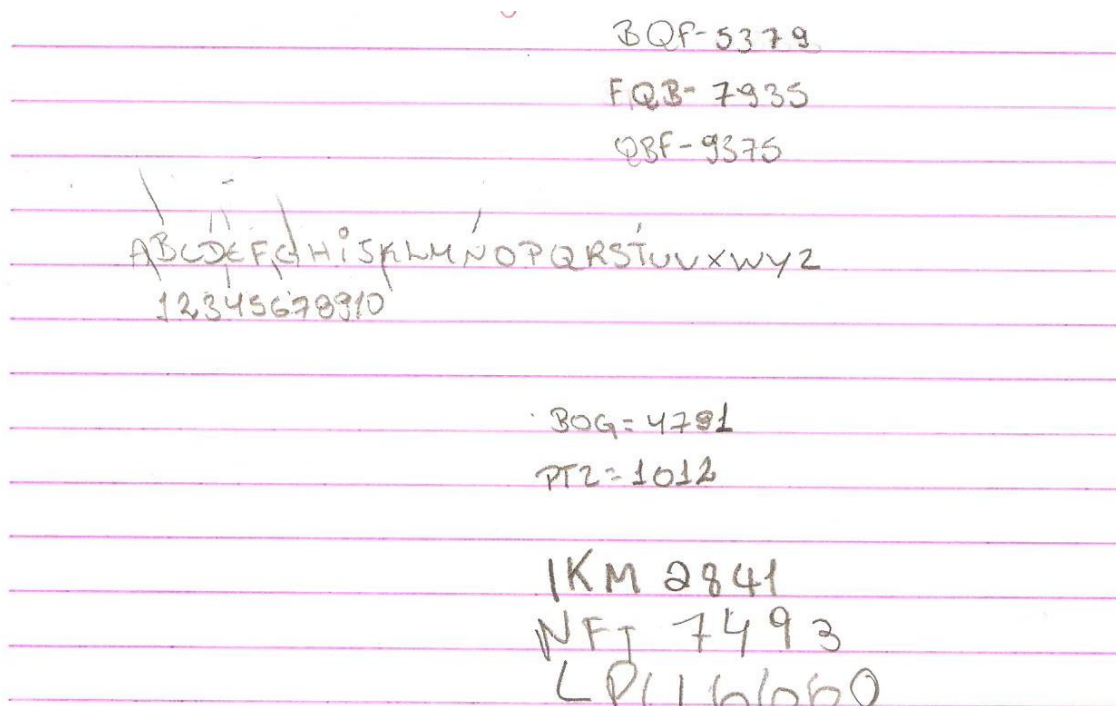 BQF-5379
FQB-7935
QBF-9375
ABCDEFGHiJKLMNOPQRSTUVXWYZ
12345678910
BOG=4791
PTZ=1012
IKM 2841
NFT 7493